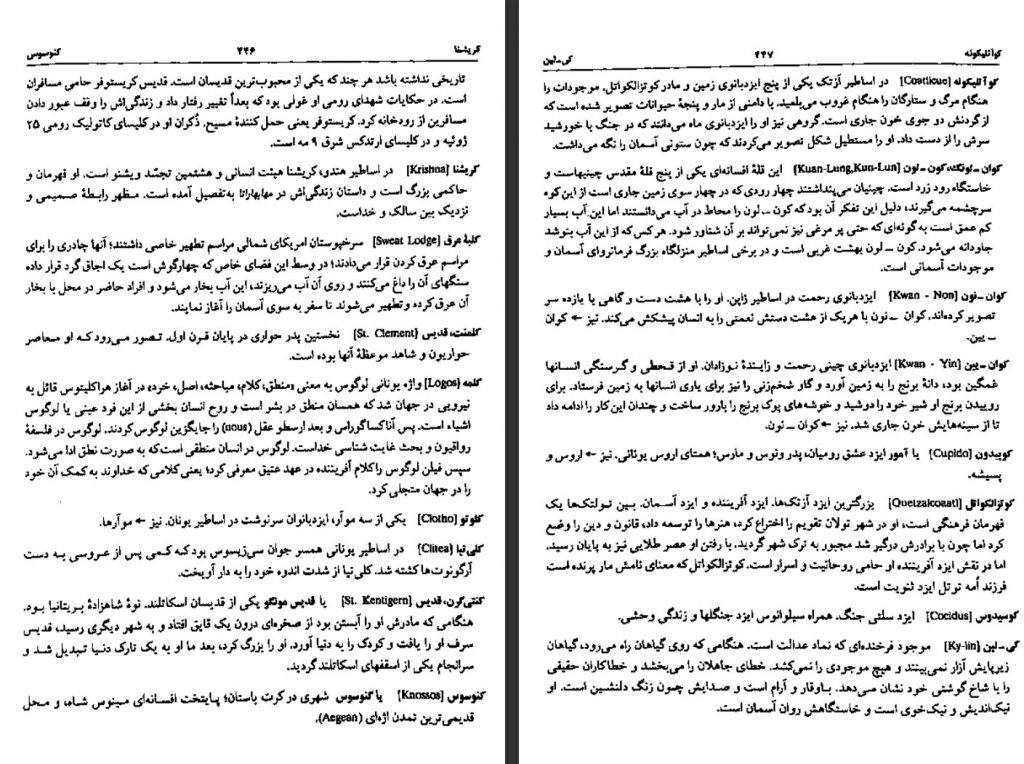 کریشنا ۴۴۶ کنوسوس
تاریخی نداشته باشد هر چند که یکی از محبوب‌ترین قدیسان است. قدیس کریستوفر حامی مسافران
است. در حکایات شهدای رومی او غولی بود که بعداً تغییر رفتار داد و زندگی‌اش را وقف عبور دادن
مسافرین از رودخانه کرد. کریستوفر یعنی حمل کنندهٔ مسیح. ذُکران او در کلیسای کاتولیک رومی ۲۵
ژوئیه و در کلیسای ارتدکس شرق ۹ مه است.
کریشنا [Krishna] در اساطیر هندو، کریشنا هیئت انسانی و هشتمین تجسّد ویشنو است. او قهرمان و
حاکمی بزرگ است و داستان زندگی‌اش در مهابهاراتا به‌تفصیل آمده است. مـظهر رابـطهٔ صـمیمی و
نزدیک بین سالک و خداست.
کلبهٔ عرق [Sweat Lodge] سرخپوستان امریکای شمالی مراسم تطهیر خاصی داشتند؛ آنها چادری را برای
مراسم عرق کردن قرار می‌دادند؛ در وسط این فضای خاص که چهارگوش است یک اجاق گرد قرار داده
سنگهای آن را داغ می‌کنند و روی آن آب می‌ریزند، این آب بخار می‌شود و افراد حاضر در محل با بخار
آن عرق کرده و تطهیر می‌شوند تا سفر به سوی آسمان را آغاز نمایند.
کلمنت، قدیس [St. Clement] نخستین پدر حواری در پایان قرن اول. تـصور مـی‌رود کـه او مـعاصر
حواریون و شاهد موعظهٔ آنها بوده است.
کلمه [Logos] واژه یونانی لوگوس به معنی «منطق، کلام، مباحثه، اصل، خرد» در آغاز هراکلیتوس قائل به
نیرویی در جهان شد که همسان منطق در بشر است و روح انسان بخشی از این فرد عینی یا لوگوس
اشیاء است. پس آناکساگوراس و بعد ارسطو عقل (nous) را جایگزین لوگوس کردند. لوگوس در فلسفهٔ
رواقیون و بحث غایت شناسی خداست. لوگوس در انسان منطقی است که به صورت نطق ادا می‌شود.
سپس فیلن لوگوس را کلام آفریننده در عهد عتیق معرفی کرد؛ یعنی کلامی که خداوند به کمک آن خود
را در جهان متجلی کرد.
کلوتو [Clotho] یکی از سه موآر، ایزدبانوان سرنوشت در اساطیر یونان. نیز ← موآرها.
کلی‌تیا [Clitea] در اساطیر یونانی همسر جوان سی‌زیسوس بود کـه کـمی پس از عـروسی بـه دست
آرگونوت‌ها کشته شد. کلی‌تیا از شدت اندوه خود را به دار آویخت.
کنتی‌گرن، قدیس [St. Kentigern] یا قدیس مونگو یکی از قدیسان اسکاتلند. نوهٔ شاهزادهٔ بریتانیا بود.
هنگامی که مادرش او را آبستن بود از صخره‌ای درون یک قایق افتاد و به شهر دیگری رسید، قدیس
سرف او را یافت و کودک را به دنیا آورد. او را بزرگ کرد، بعد ما او به یک تارک دنیـا تبدیل شـد و
سرانجام یکی از اسقفهای اسکاتلند گردید.
کنوسوس [Knossos] یا گنوسوس شهری در کرت باستان؛ پـایتخت افسـانه‌ای مـینوس شـاه، و مـحل
قدیمی‌ترین تمدن اژه‌ای (Aegean).
کوآتلیکوئه ۴۴۷ کی‌ـ‌لین
کوآتلیکوئه [Coatlicue] در اساطیر آزتک یکی از پنج ایزدبانوی زمین و مادر کوتزالکواتل. موجودات را
هنگام مرگ و ستارگان را هنگام غروب می‌بلعید. با دامنی از مار و پنجهٔ حیوانات تصویر شده است که
از گردنش دو جوی خون جاری است. گروهی نیز او را ایزدبانوی ماه می‌دانند که در جنگ با خورشید
سرش را از دست داد. او را مستطیل شکل تصویر می‌کردند که چون ستونی آسمان را نگه می‌داشت.
کوان ـ لونگ، کون ـ لون [Kuan-Lung,Kun-Lun] این قلهٔ افسانه‌ای یکی از پنج قلهٔ مقدس چینیهاست و
خاستگاه رود زرد است. چینیان می‌پنداشتند چهار رودی که در چهار سوی زمین جاری است از این کوه
سرچشمه می‌گیرند، دلیل این تفکر آن بود که کون ـ لون را محاط در آب می‌دانستند اما این آب بسیار
کم عمق است به گونه‌ای که حتی پر مرغی نیز نمی‌تواند بر آن شناور شود. هر کس که از این آب بنوشد
جاودانه می‌شود. کون ـ لون بهشت غربی است و در برخی اساطیر منزلگاه بزرگ فرمانروای آسمان و
موجودات آسمانی است.
کوان‌ـ‌نون [Kwan - Non] ایزدبانوی رحمت در اساطیر ژاپن. او را با هشت دست و گاهی با یازده سر
تصویر کرده‌اند. کوان ـ نون با هر یک از هشت دستش نعمتی را به انسان پیشکش می‌کند. نیز ← کوان
ـ یین.
کوان‌ـ‌یین [Kwan - Yin] ایزدبانوی چینی رحمت و زایندهٔ نـوزادان. او از قـحطی و گـرسنگی انسـانها
غمگین بود، دانهٔ برنج را به زمین آورد و گاو شخم‌زنی را نیز برای یاری انسانها به زمین فرستاد. برای
روییدن برنج او شیر خود را دوشید و خوشه‌های پوک برنج را بارور ساخت و چندان این کار را ادامه داد
تا از سینه‌هایش خون جاری شد. نیز ← کوان ـ نون.
کوپیدون [Cupido] یا آمور ایزد عشق رومیان، پدر ونوس و مارس؛ همتای اروس یونانی. نیز ← اروس و
پسیشه.
کوتزالکواتل [Quetzalcoaatl] بزرگترین ایزد آزتک‌ها. ایزد آفریننده و ایزد آسـمان. بـین تـولتک‌ها یک
قهرمان فرهنگی است، او در شهر تولان تقویم را اختراع کرد، هنرها را توسعه داد، قانون و دین را وضع
کرد اما چون با برادرش درگیر شد مجبور به ترک شهر گردید. با رفتن او عصر طلایی نیز به پایان رسید.
اما در نقش ایزد آفریننده او حامی روحانیت و اسرار است. کوتزالکواتل که معنای نامش مار پرنده است
فرزند اُمه توتل ایزد ثنویت است.
کوسیدوس [Cocidus] ایزد سلتی جنگ. همراه سیلوانوس ایزد جنگلها و زندگی وحشی.
کی ـ لین [Ky-lin] موجود فرخنده‌ای که نماد عدالت است. هنگامی که روی گیاهان راه می‌رود، گیاهان
زیرپایش آزار نمی‌بینند و هیچ موجودی را نمی‌کشد. خطای جاهلان را می‌بخشد و خطاکاران حقیقی
را با شاخ گوشتی خود نشان می‌دهد. بـاوقار و آرام است و صـدایش چـون زنگ دلنشین است. او
نیک‌اندیش و نیک‌خوی است و خاستگاهش روان آسمان است.